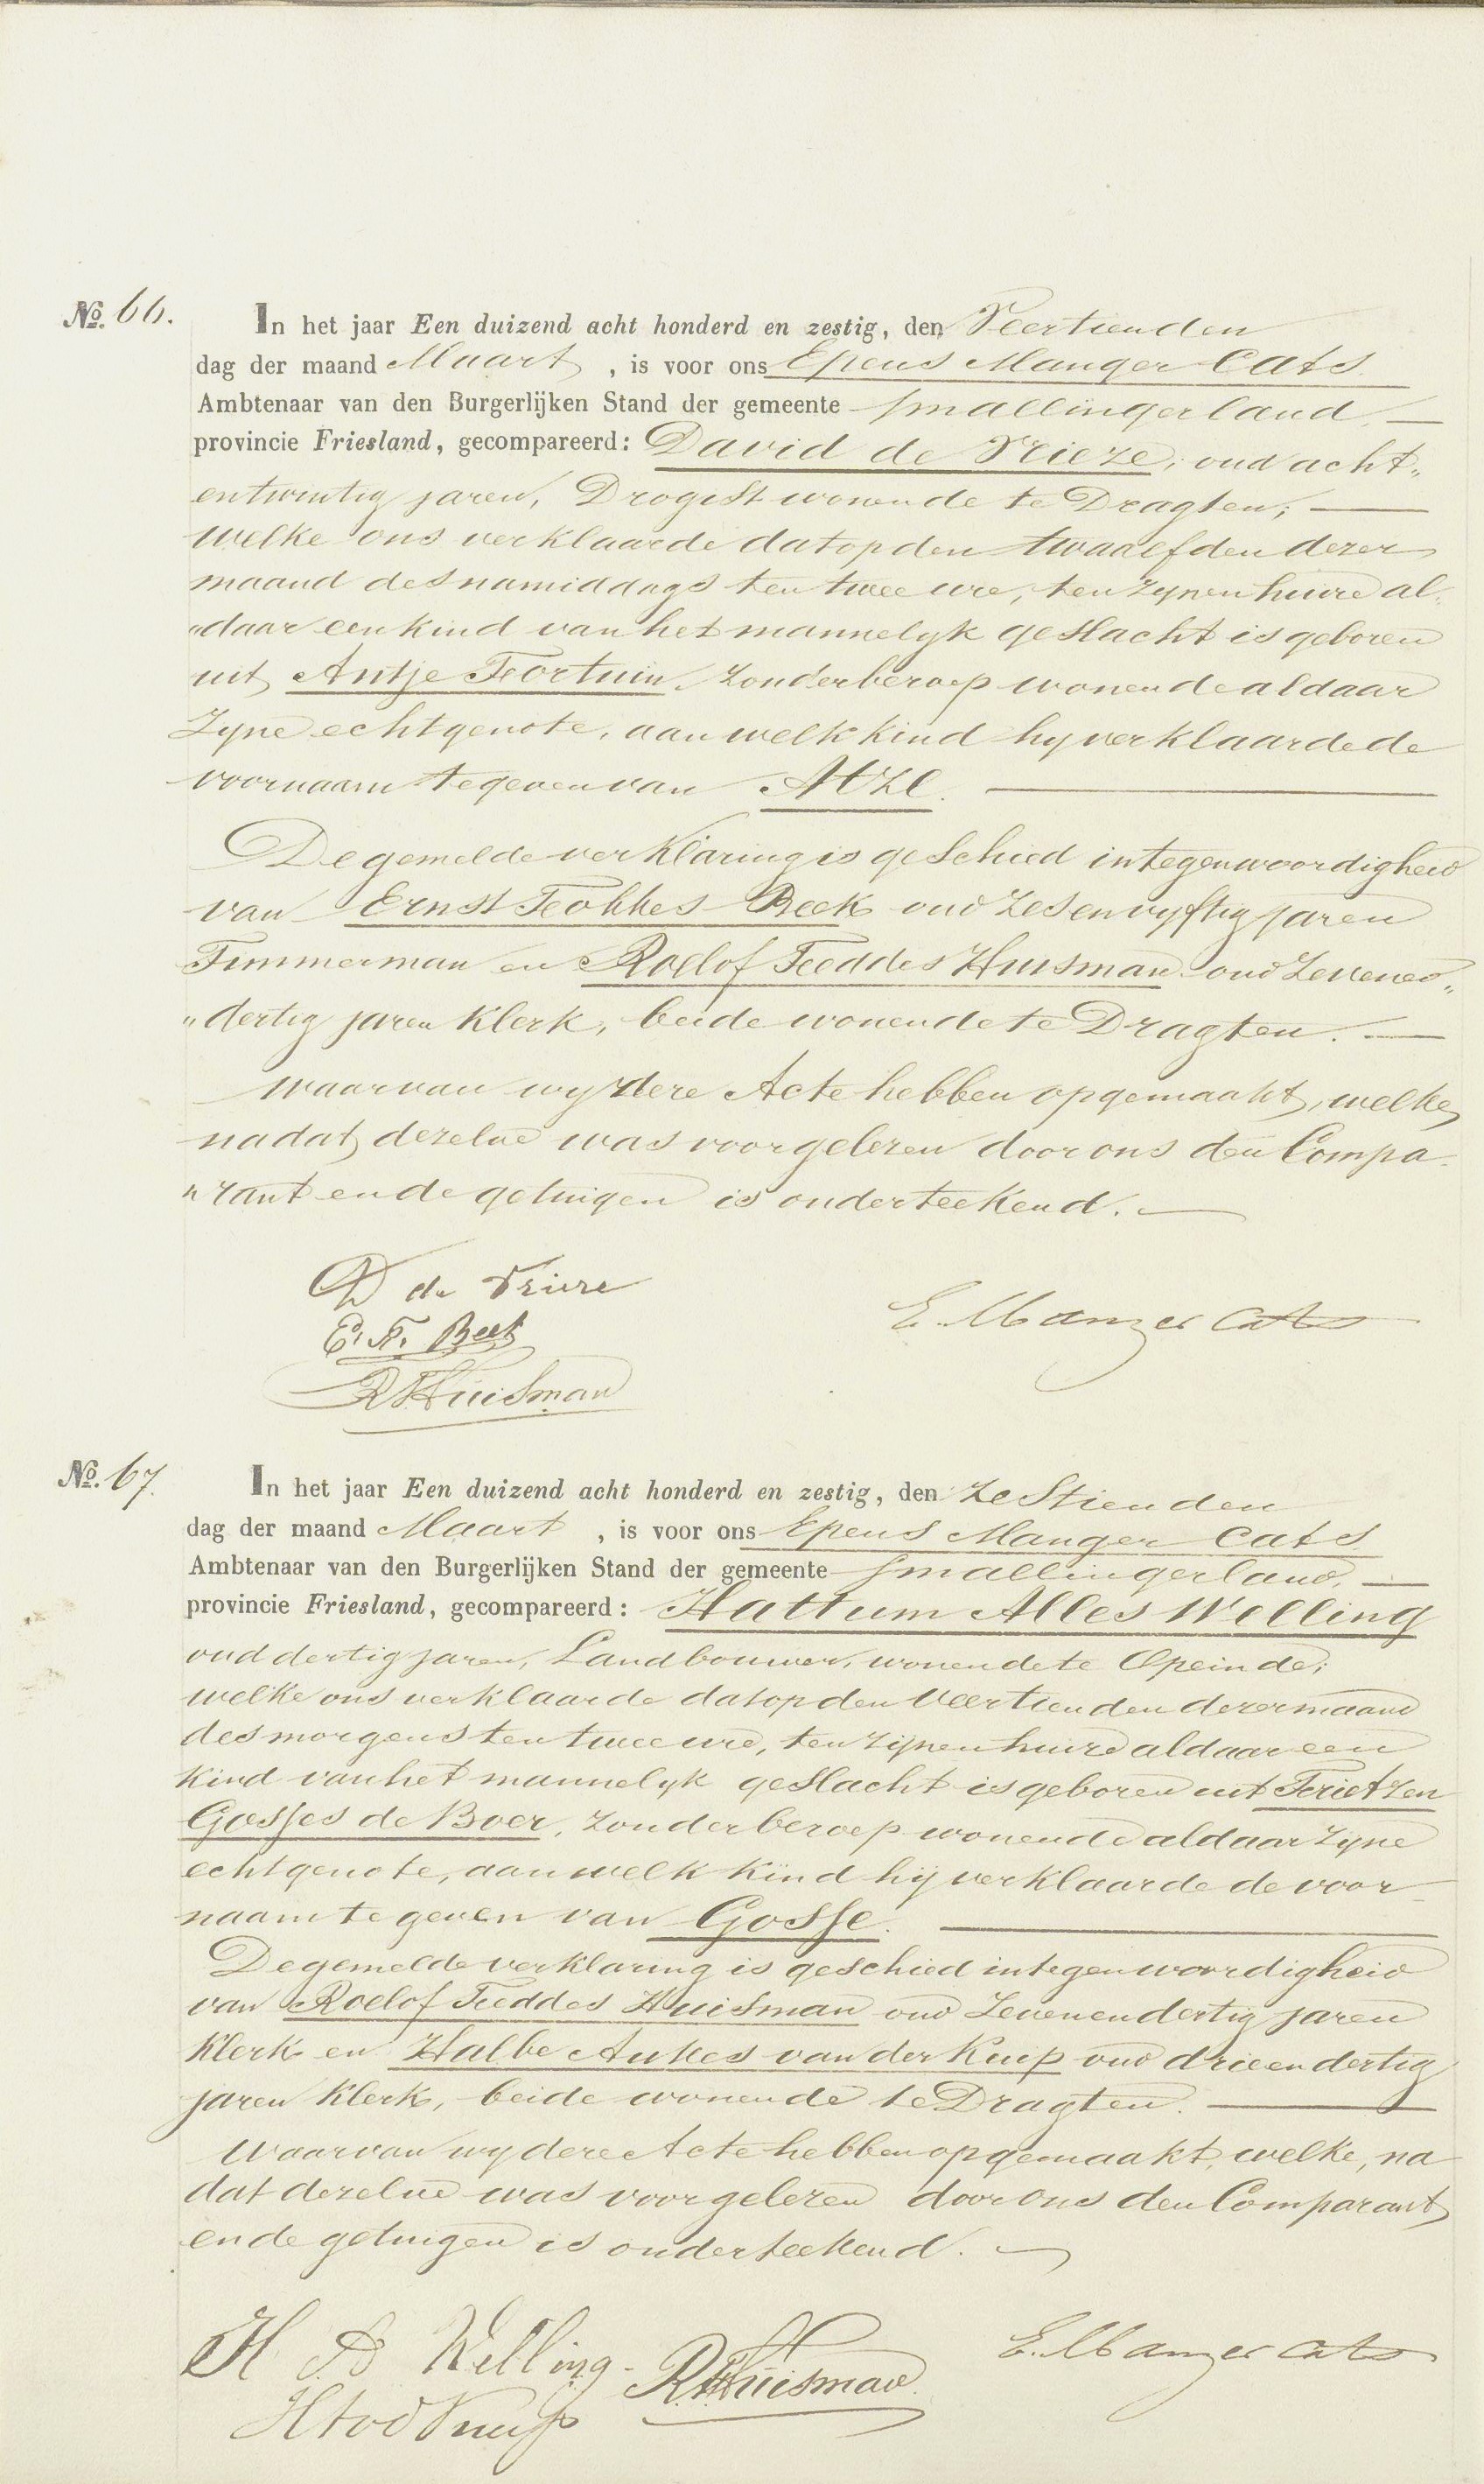 No. 66.
In het jaar Een duizend acht honderd en zestig, den Veertienden
dag der maand Maart, is voor ons Epeus Manger Cats
Ambtenaar van den Burgerlijken Stand der gemeente Smallingerland, —
provincie Friesland, gecompareerd: David de Vrieze, oud acht„
entwintig jaren, Drogist wonende te Dragten; —
welke ons verklaarde dat op den twaalfden dezer
maand des namiddags ten twee ure, ten zynen huize al„
„daar een kind van het mannelyk geslacht is geboren
uit Antje Fortuin, zonder beroep wonende aldaar
Zyne echtgenote, aan welk kind hy verklaarde de
voornaam te geven van Atze. —
De gemelde verklaring is geschied in tegenwoordigheid
van Ernst Fokkes Beek oud zesenvyftig jaren
Timmerman en Roelof Feddes Huisman oud zevenen„
„dertig jaren Klerk, beide wonende te Dragten. —
waarvan wy dere Acte hebben opgemaakt, welke,
nadat dezelve was voorgelezen door ons den Compa„
„rant en de getuigen is onderteekend. —
D de Vrieze
E. F. Beek
E. Manger Cats
RFHuisman
No. 67.
In het jaar Een duizend acht honderd en zestig, den Zestienden
dag der maand Maart, is voor ons Epeus Manger Cats
Ambtenaar van den Burgerlijken Stand der gemeente Smallingerland, —
provincie Friesland, gecompareerd: Hattum Alles Welling
oud dertig jaren, Landbouwer, wonende te Opeinde;
welke ons verklaarde dat op den Veertienden dezer maand
des morgens ten twee ure, ten zijnen huize aldaar een
Kind van het mannelyk geslacht is geboren uit Terietzen
Gosses de Boer, zonder beroep wonende aldaar zyne
echtgenote, aan welk kind hij verklaarde de voor
naam te geven van Gosse. —
De gemelde verklaring is geschied in tegenwoordigheid
van Roelof Feddes Huisman oud zevenendertig jaren
Klerk en Halbe Aukes van der Kuip oud drieendertig
jaren Klerk, beide wonende te Dragten. —
waarvan wy dere Acte hebben opgemaakt, welke, na
dat dezelve was voorgelezen door ons den Comparant
en de getuigen is onderteekend. —
H A Welling. RFHuisman
E. Manger Cats
HAvdKuip